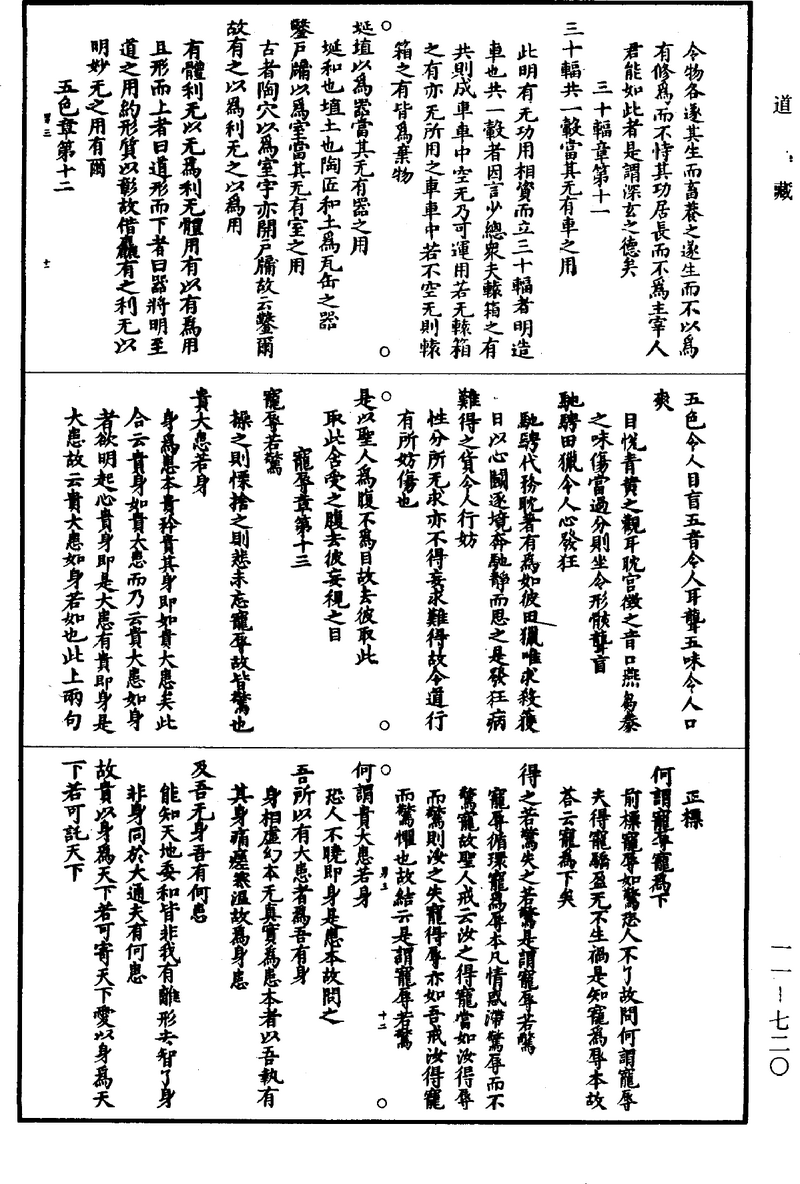 道藏
令物各遂其生而畜養之遂生而不以爲
有修爲而不恃其功居長而不爲主宰人
君能如此者是謂深玄之德矣
三十輻章第十一
三十輻共一轂當其无有車之用
此明有无功用相資而立三十輻者明造
車也共一轂者因言少總衆夫轅箱之有
共則成車車中空无乃可運用若无轅箱
之有亦无所用之車車中若不空无則轅
箱之有皆爲棄物
埏埴以爲器當其无有器之用
埏和也埴土也陶匠和土爲瓦缶之器
鑿戶牖以爲室當其无有室之用
古者陶穴以爲室宇亦開戶牖故云鑿爾
故有之以爲利无之以爲用
有體利无以无爲利无體用有以有爲用
且形而上者曰道形而下者曰器將明至
道之用約形質以彰故借麤有之利无以
明妙无之用有爾
五色章第十二
五色令人目盲五音令人耳聾五味令人口
爽
目悅青黃之觀耳耽宮徵之音口燕芻豢
之味傷當過分則坐令形骸聾盲
馳騁田獵令人心發狂
馳騁代務耽著有爲如彼田獵唯求殺獲
日以心鬭逐境奔馳靜而思之是發狂病
難得之貨令人行妨
性分所无求亦不得妄求難得故令道行
有所妨傷也
是以聖人爲腹不爲目故去彼取此
取此含受之腹去彼妄視之目
寵辱章第十三
寵辱若驚
操之則慄捨之則悲未忘寵辱故皆驚也
貴大患若身
身爲患本貴矜貴其身即如貴大患矣此
合云貴身如貴大患而乃云貴大患如身
者欲明起心貴身即是大患有貴即身是
大患故云貴大患如身若如也此上兩句
正標
何謂寵辱寵爲下
前標寵辱如驚恐人不了故問何謂寵辱
夫得寵驕盈无不生禍是知寵爲辱本故
荅云寵爲下矣
得之若驚失之若驚是謂寵辱若驚
寵辱循環寵爲辱本凡情惑滯驚辱而不
驚寵故聖人戒云汝之得寵當如汝得辱
而驚則汝之失寵得辱亦如吾戒汝得寵
而驚懼也故結云是謂寵辱若驚
何謂貴大患若身
恐人不曉即身是患本故問之
吾所以有大患者爲吾有身
身相虛幻本无真實爲患本者以吾執有
其身痛癢寒溫故爲身患
及吾无身吾有何患
能知天地委和皆非我有離形去智了身
非身同於大通夫有何患
故貴以身爲天下若可寄天下愛以身爲天
下若可託天下
一一－七二〇